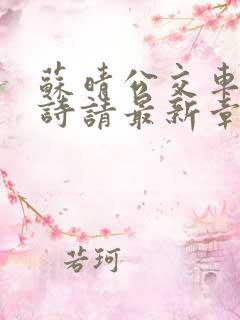 蘇晴公交車
詩請最新章
若珂